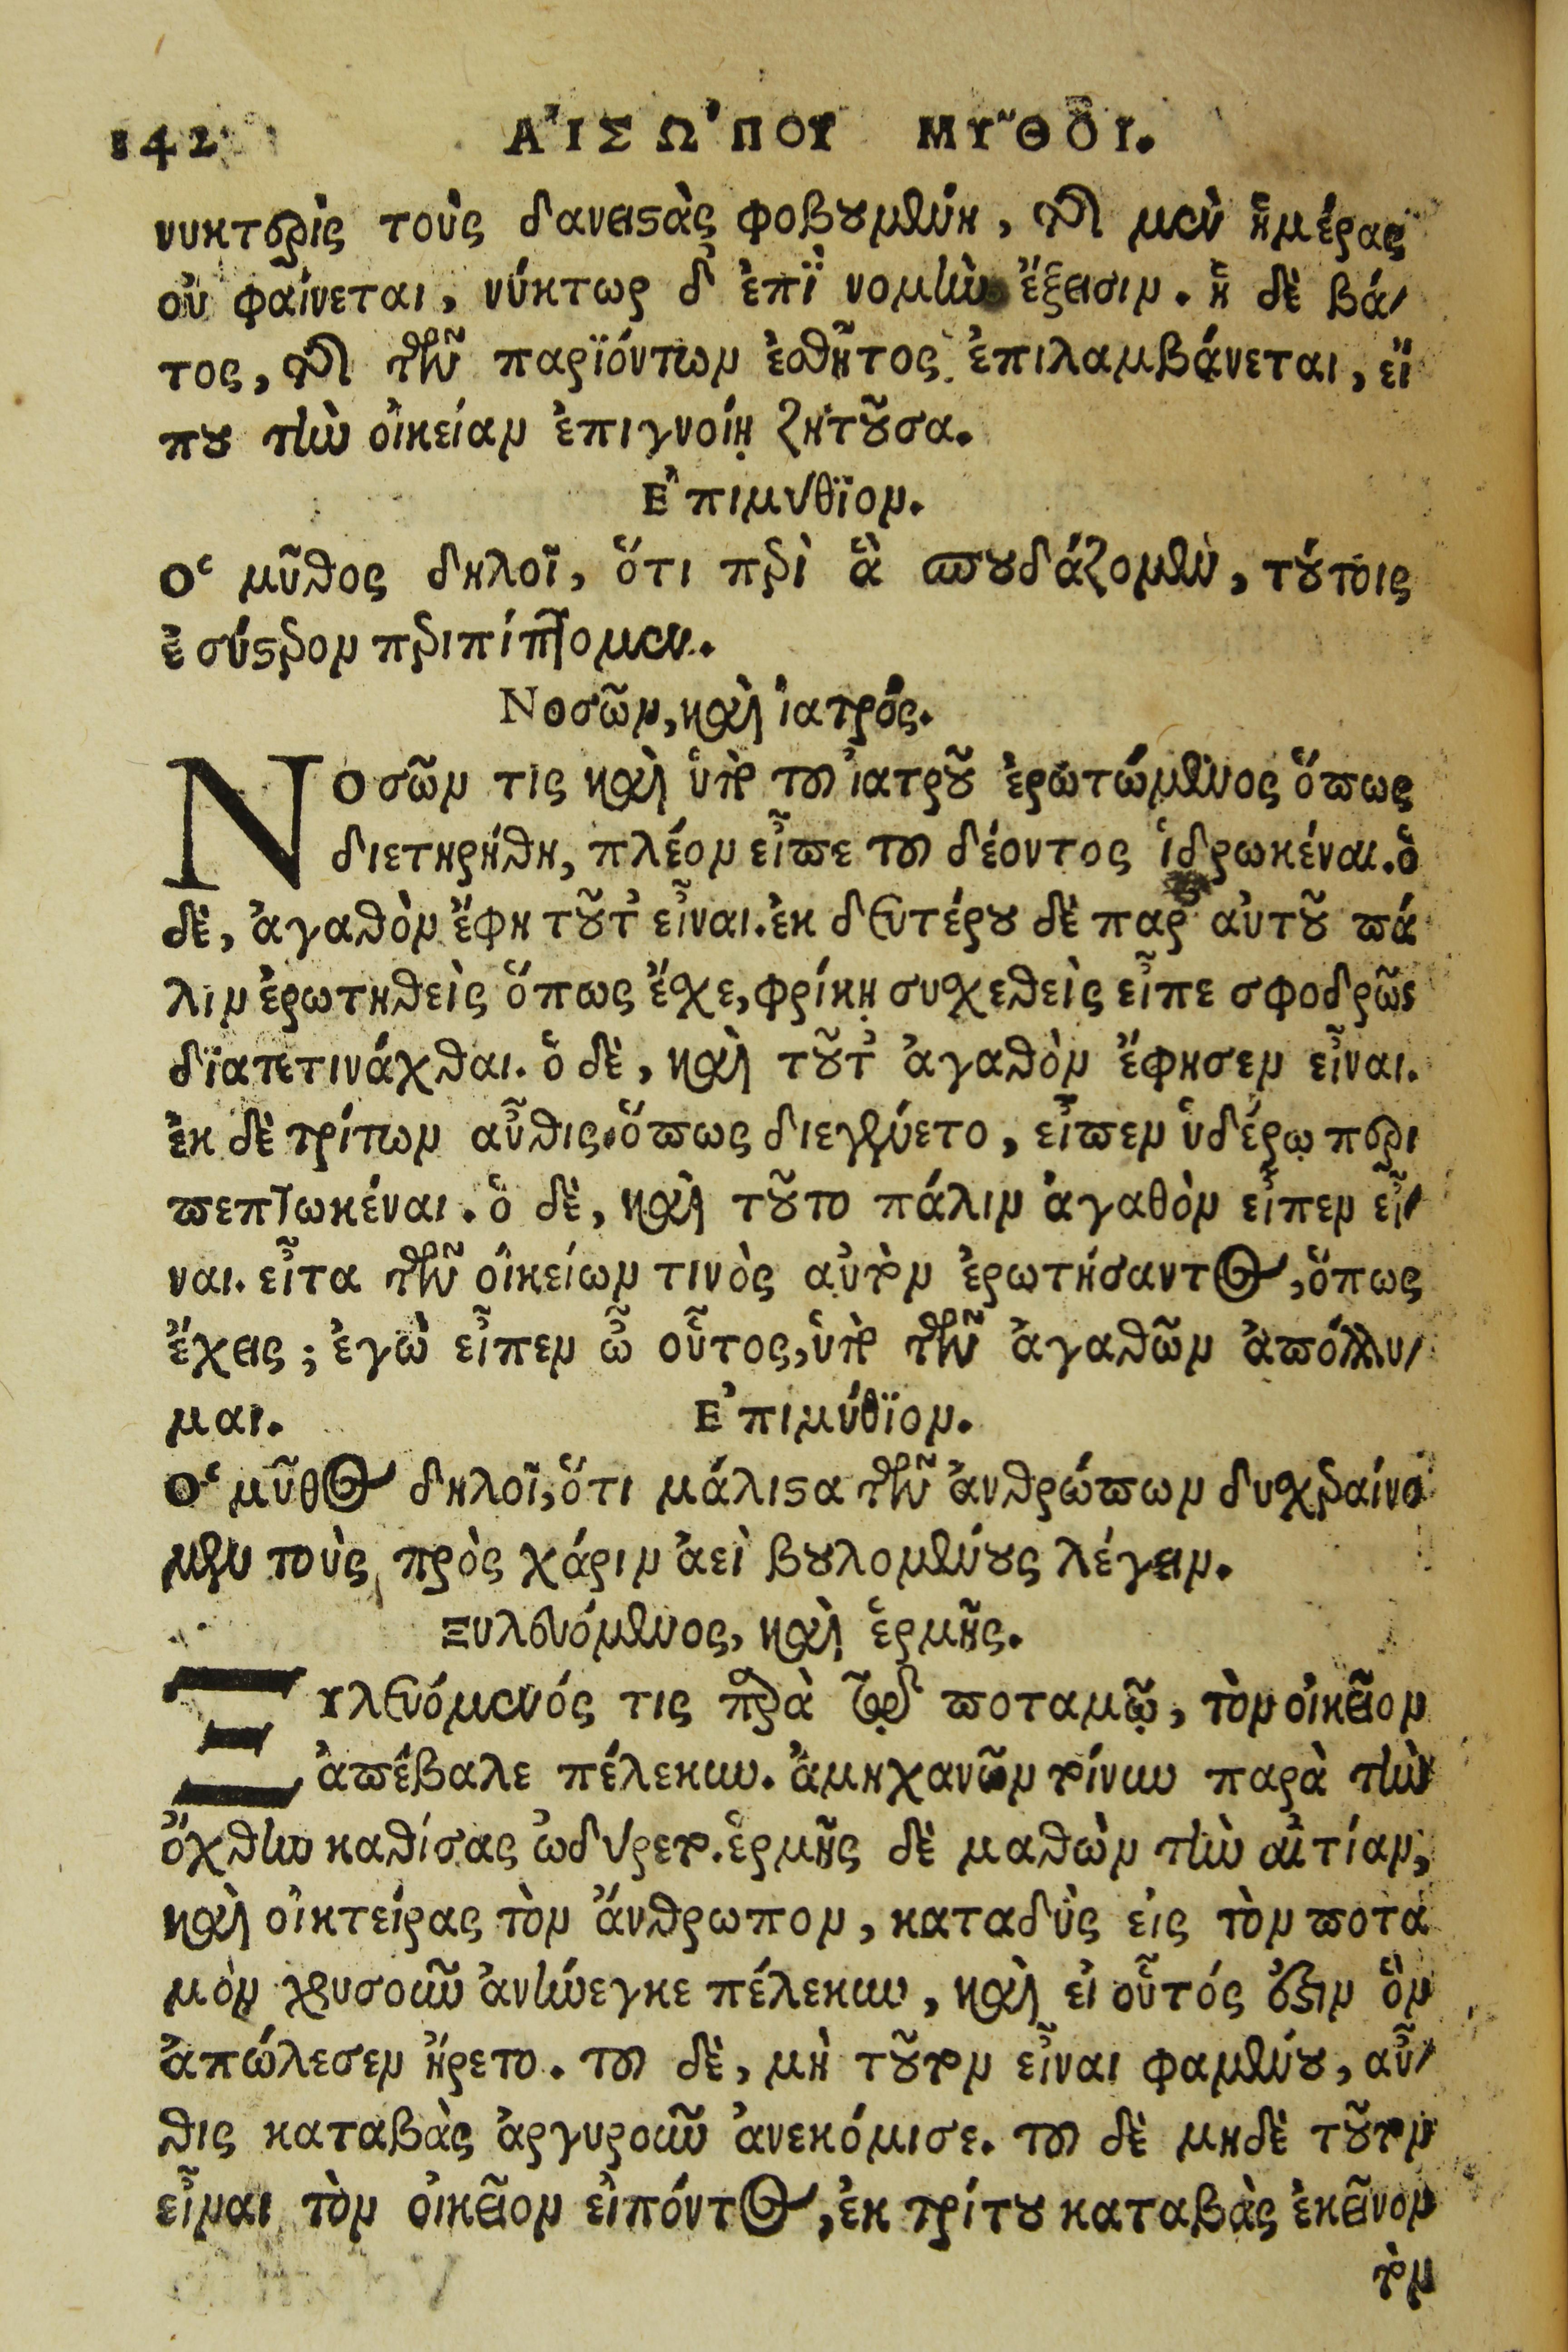 142 ΑἸΣΩ'ΠΟΥ ΜΥ͂ΘΟΙ.
νυκτερὶς τοὺς δανειστὰς φοβουμένη, διὰ μὲν ἡμέρας
οὐ φαίνεται, νύκτωρ δ' ἐπὶ νομὴν ἔξεισιν. ἡ δὲ βά-
τος, διὰ τῶν παριόντων ἐσθῆτος ἐπιλαμβάνεται, εἴ
που τὴν οἰκείαν ἐπιγνοίη ζητοῦσα.
Ἐπιμύθϊον.
Ὁ μῦθος δηλοῖ, ὅτι περὶ ἃ σπουδάζομεν, τούτοις
ἐς ὕστερον περιπίπτομεν.
Νοσῶν, καὶ ἰατρός.
Νοσῶν τις καὶ ὑπὸ τοῦ ἰατροῦ ἐρωτώμενος ὅπως
διετηρήθη, πλέον εἶπε τοῦ δέοντος ἱδρωκέναι. ὁ
δὲ, ἀγαθὸν ἔφη τοῦτ' εἶναι. ἐκ δευτέρου δὲ παρ' αὐτοῦ πά
λιν ἐρωτηθεὶς ὅπως ἔχε, φρίκῃ συχεθεὶς εἶπε σφοδρῶς
δϊατετινάχθαι. ὁ δὲ, καὶ τοῦτ' ἀγαθὸν ἔφησεν εἶναι.
ἐκ δὲ τρίτων αὖθις ὅπως διεγένετο, εἶπεν ὑδέρῳ περι
πεπτωκέναι. ὁ δὲ, καὶ τοῦτο πάλιν ἀγαθὸν εἶπεν εἶ-
ναι. εἶτα τῶν οἰκείων τινὸς αὐτὸν ἐρωτήσαντος, ὅπως
ἔχεις; ἐγὼ εἶπεν ὦ οὗτος, ὑπὸ τῶν ἀγαθῶν ἀπόλλυ-
μαι. Ἐπιμύθϊον.
Ὁ μῦθος δηλοῖ, ὅτι μάλιστα τῶν ἀνθρώπων δυχεραίνο
μεν τοὺς πρὸς χάριν ἀεὶ βουλομένους λέγειν.
Ξυλευόμενος, καὶ ἑρμῆς.
Ξυλευόμενός τις παρὰ τῷ ποταμῷ, τὸν οἰκεῖον
ἀπέβαλε πέλεκυν. ἀμηχανῶν τοίνυν παρὰ τὴν
ὄχθην καθίσας ὠδύρετο. ἑρμῆς δὲ μαθὼν τὴν αἰτίαν,
καὶ οἰκτείρας τὸν ἄνθρωπον, καταδὺς εἰς τὸν ποτα
μὸν χρυσοῦν ἀνήνεγκε πέλεκυν, καὶ εἰ οὗτός ἐστιν ὃν
ἀπώλεσεν ἤρετο. τοῦ δὲ, μὴ τοῦτον εἶναι φαμένου, αὖ-
θις καταβὰς ἀργυροῦν ἀνεκόμισε. τοῦ δὲ μηδὲ τοῦτον
εἶναι τὸν οἰκεῖον εἰπόντος, ἐκ τρίτου καταβὰς ἐκεῖνον
τὸν